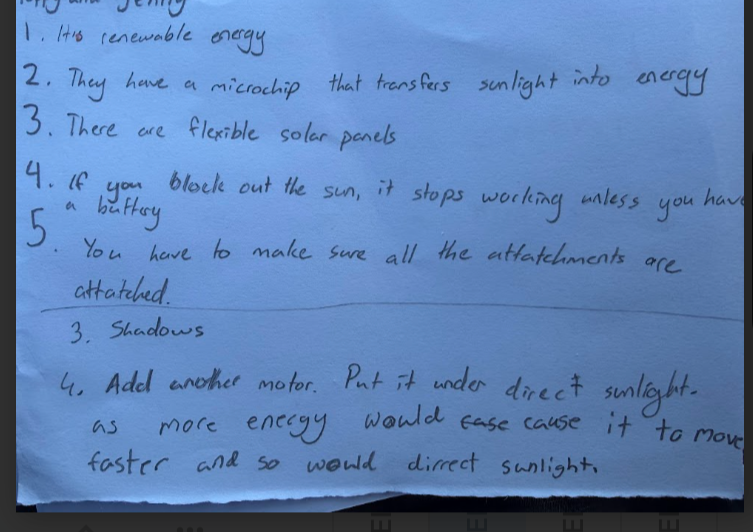 and Jenny
1. It's renewable energy
2. They have a microchip that transfers sunlight into energy
3. There are flexible solar panels
4. If you block out the sun, it stops working unless you have
a battery
5. You have to make sure all the attatchments are
attatched.
3. Shadows
4. Add another motor. Put it under direct sunlight.
as more energy would ease cause it to move
faster and so would dirrect sunlight.